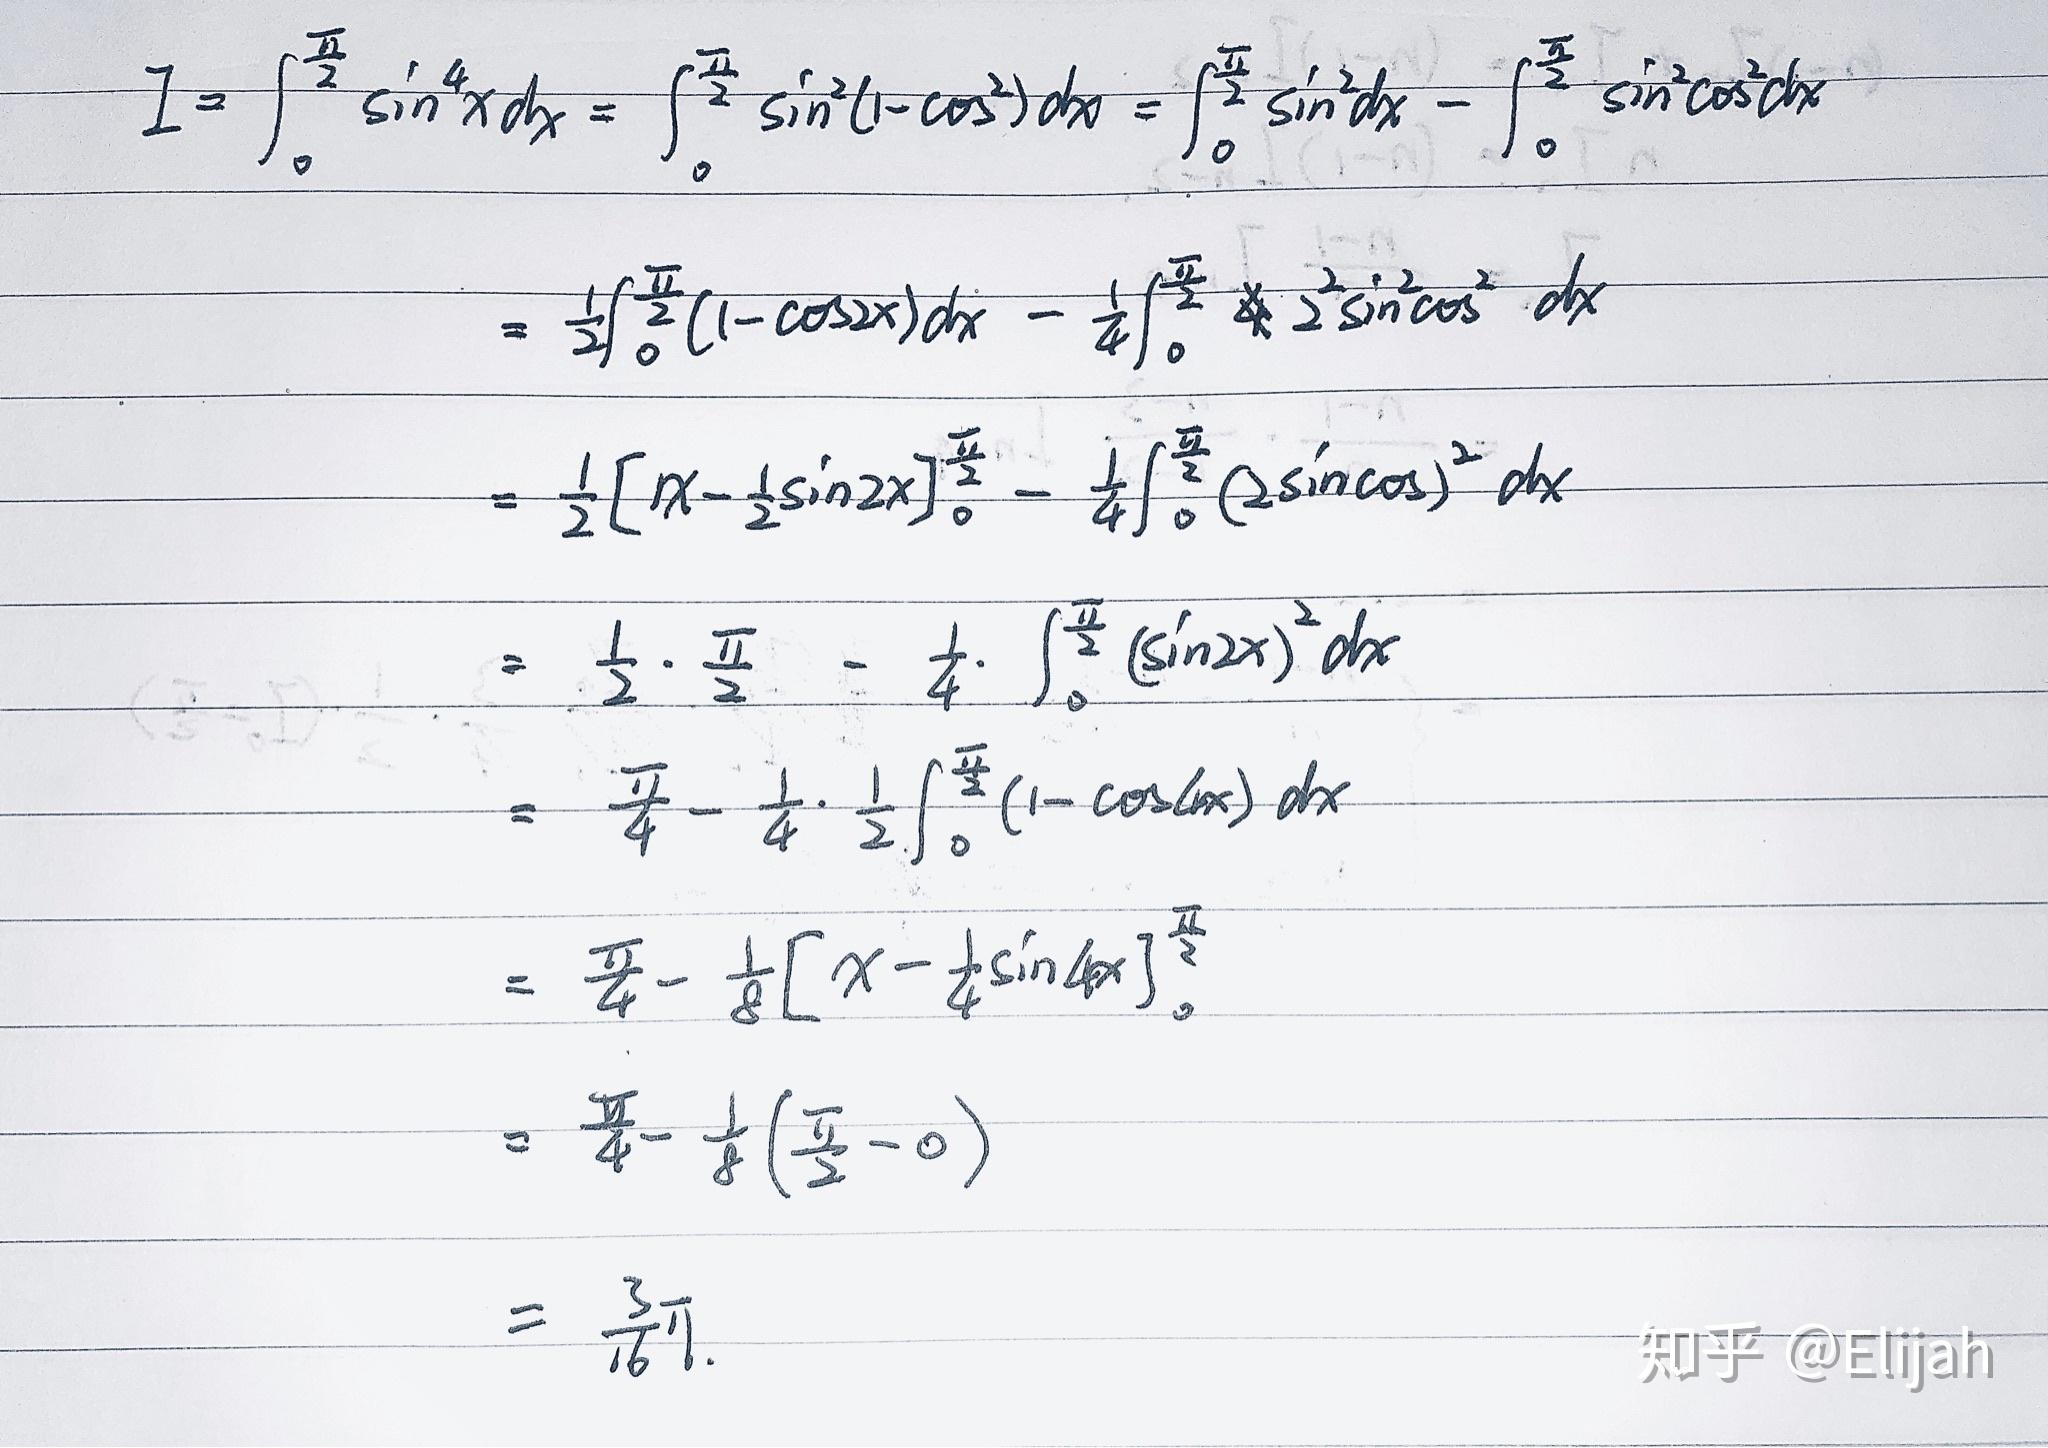 I = ∫₀^{π/2} sin⁴x dx = ∫₀^{π/2} sin²(1-cos²) dx = ∫₀^{π/2} sin²dx - ∫₀^{π/2} sin²cos²dx
= 1/2 ∫₀^{π/2} (1-cos2x) dx - 1/4 ∫₀^{π/2} 2²sin²cos² dx
= 1/2 [x - 1/2 sin2x]₀^{π/2} - 1/4 ∫₀^{π/2} (2sincos)² dx
= 1/2 · π/2 - 1/4 · ∫₀^{π/2} (sin2x)² dx
= π/4 - 1/4 · 1/2 ∫₀^{π/2} (1- cos4x) dx
= π/4 - 1/8 [x - 1/4 sin4x]₀^{π/2}
= π/4 - 1/8 (π/2 - 0)
= 3/16 π.
知乎 @Elijah